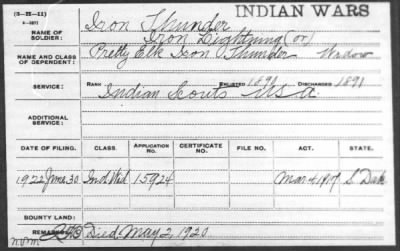 (3-22-11)
INDIAN WARS
NAME OF SOLDIER: Iron Thunder
Iron Lightning (or)
NAME AND CLASS OF DEPENDENT: Pretty Elk Iron Thunder Widow
SERVICE: RANK ENLISTED 1890 DISCHARGED 1891
Indian Scouts USA
ADDITIONAL SERVICE:
DATE OF FILING. CLASS. APPLICATION NO. CERTIFICATE NO. FILE NO. ACT. STATE.
1922 June 30 Ind Wid 15924 Mar 4 1917 S Dak
BOUNTY LAND:
REMARKS: Died May 2, 1920.